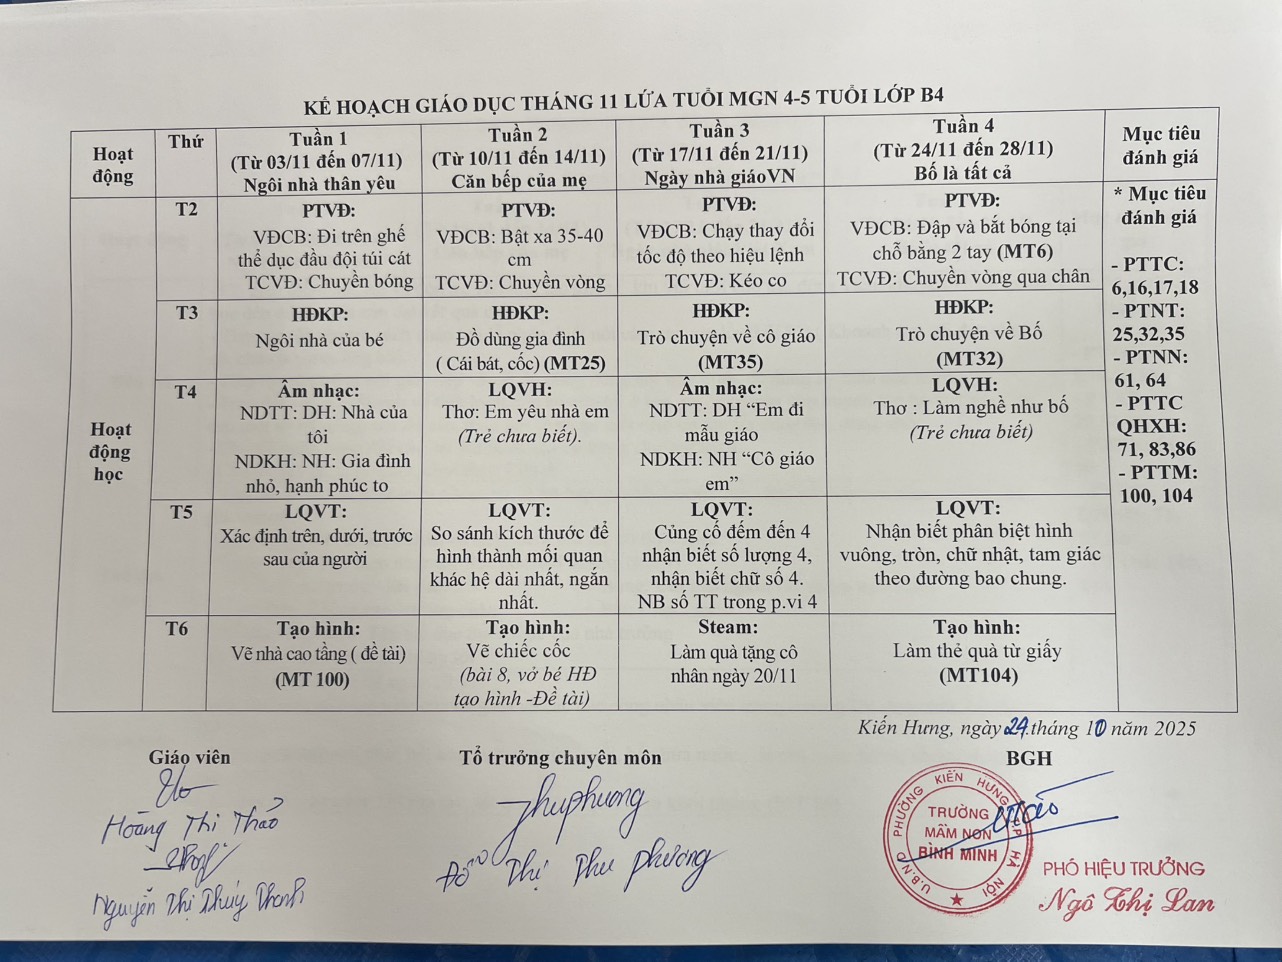 KẾ HOẠCH GIÁO DỤC THÁNG 11 LỨA TUỔI MGN 4-5 TUỔI LỚP B4
Hoạt
động
Thứ
Tuần 1
(Từ 03/11 đến 07/11)
Ngôi nhà thân yêu
Tuần 2
(Từ 10/11 đến 14/11)
Căn bếp của mẹ
Tuần 3
(Từ 17/11 đến 21/11)
Ngày nhà giáoVN
Tuần 4
(Từ 24/11 đến 28/11)
Bố là tất cả
Mục tiêu
đánh giá
Hoạt
động
học
T2
PTVĐ:
VĐCB: Đi trên ghế
thể dục đầu đội túi cát
TCVĐ: Chuyền bóng
PTVĐ:
VĐCB: Bật xa 35-40
cm
TCVĐ: Chuyền vòng
PTVĐ:
VĐCB: Chạy thay đổi
tốc độ theo hiệu lệnh
TCVĐ: Kéo co
PTVĐ:
VĐCB: Đập và bắt bóng tại
chỗ bằng 2 tay (MT6)
TCVĐ: Chuyền vòng qua chân
* Mục tiêu
đánh giá
- PTTC:
6,16,17,18
- PTNT:
25,32,35
- PTNN:
61, 64
- PTTC
QHXH:
71, 83,86
- PTTM:
100, 104
T3
HĐKP:
Ngôi nhà của bé
HĐKP:
Đồ dùng gia đình
( Cái bát, cốc) (MT25)
HĐKP:
Trò chuyện về cô giáo
(MT35)
HĐKP:
Trò chuyện về Bố
(MT32)
T4
Âm nhạc:
NDTT: DH: Nhà của
tôi
NDKH: NH: Gia đình
nhỏ, hạnh phúc to
LQVH:
Thơ: Em yêu nhà em
(Trẻ chưa biết).
Âm nhạc:
NDTT: DH “Em đi
mẫu giáo
NDKH: NH “Cô giáo
em”
LQVH:
Thơ : Làm nghề như bố
(Trẻ chưa biết)
T5
LQVT:
Xác định trên, dưới, trước
sau của người
LQVT:
So sánh kích thước để
hình thành mối quan
khác hệ dài nhất, ngắn
nhất.
LQVT:
Củng cố đếm đến 4
nhận biết số lượng 4,
nhận biết chữ số 4.
NB số TT trong p.vi 4
LQVT:
Nhận biết phân biệt hình
vuông, tròn, chữ nhật, tam giác
theo đường bao chung.
T6
Tạo hình:
Vẽ nhà cao tầng ( đề tài)
(MT 100)
Tạo hình:
Vẽ chiếc cốc
(bài 8, vở bé HĐ
tạo hình -Đề tài)
Steam:
Làm quà tặng cô
nhân ngày 20/11
Tạo hình:
Làm thẻ quà từ giấy
(MT104)
Kiến Hưng, ngày 29 tháng 10 năm 2025
Giáo viên
Tổ trưởng chuyên môn
BGH
Hoàng Thị Thảo
Nguyễn Thị Thúy Thanh
Thuphương
Đỗ Thị Thu Phương
U.B.N.D PHƯỜNG KIẾN HƯNG TP HÀ NỘI
TRƯỜNG
MẦM NON
BÌNH MINH
PHÓ HIỆU TRƯỞNG
Ngô Thị Lan